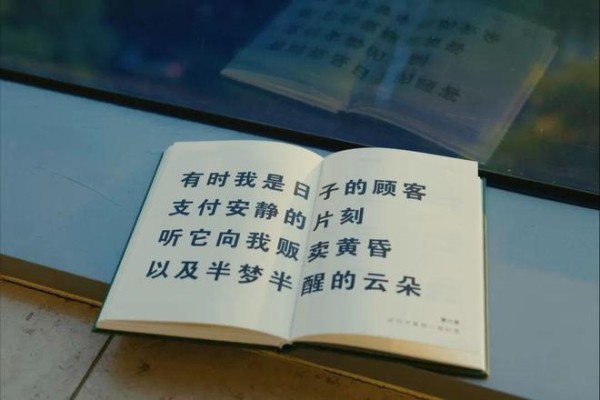 有时我是日子的顾客
支付安静的片刻
听它向我贩卖黄昏
以及半梦半醒的云朵